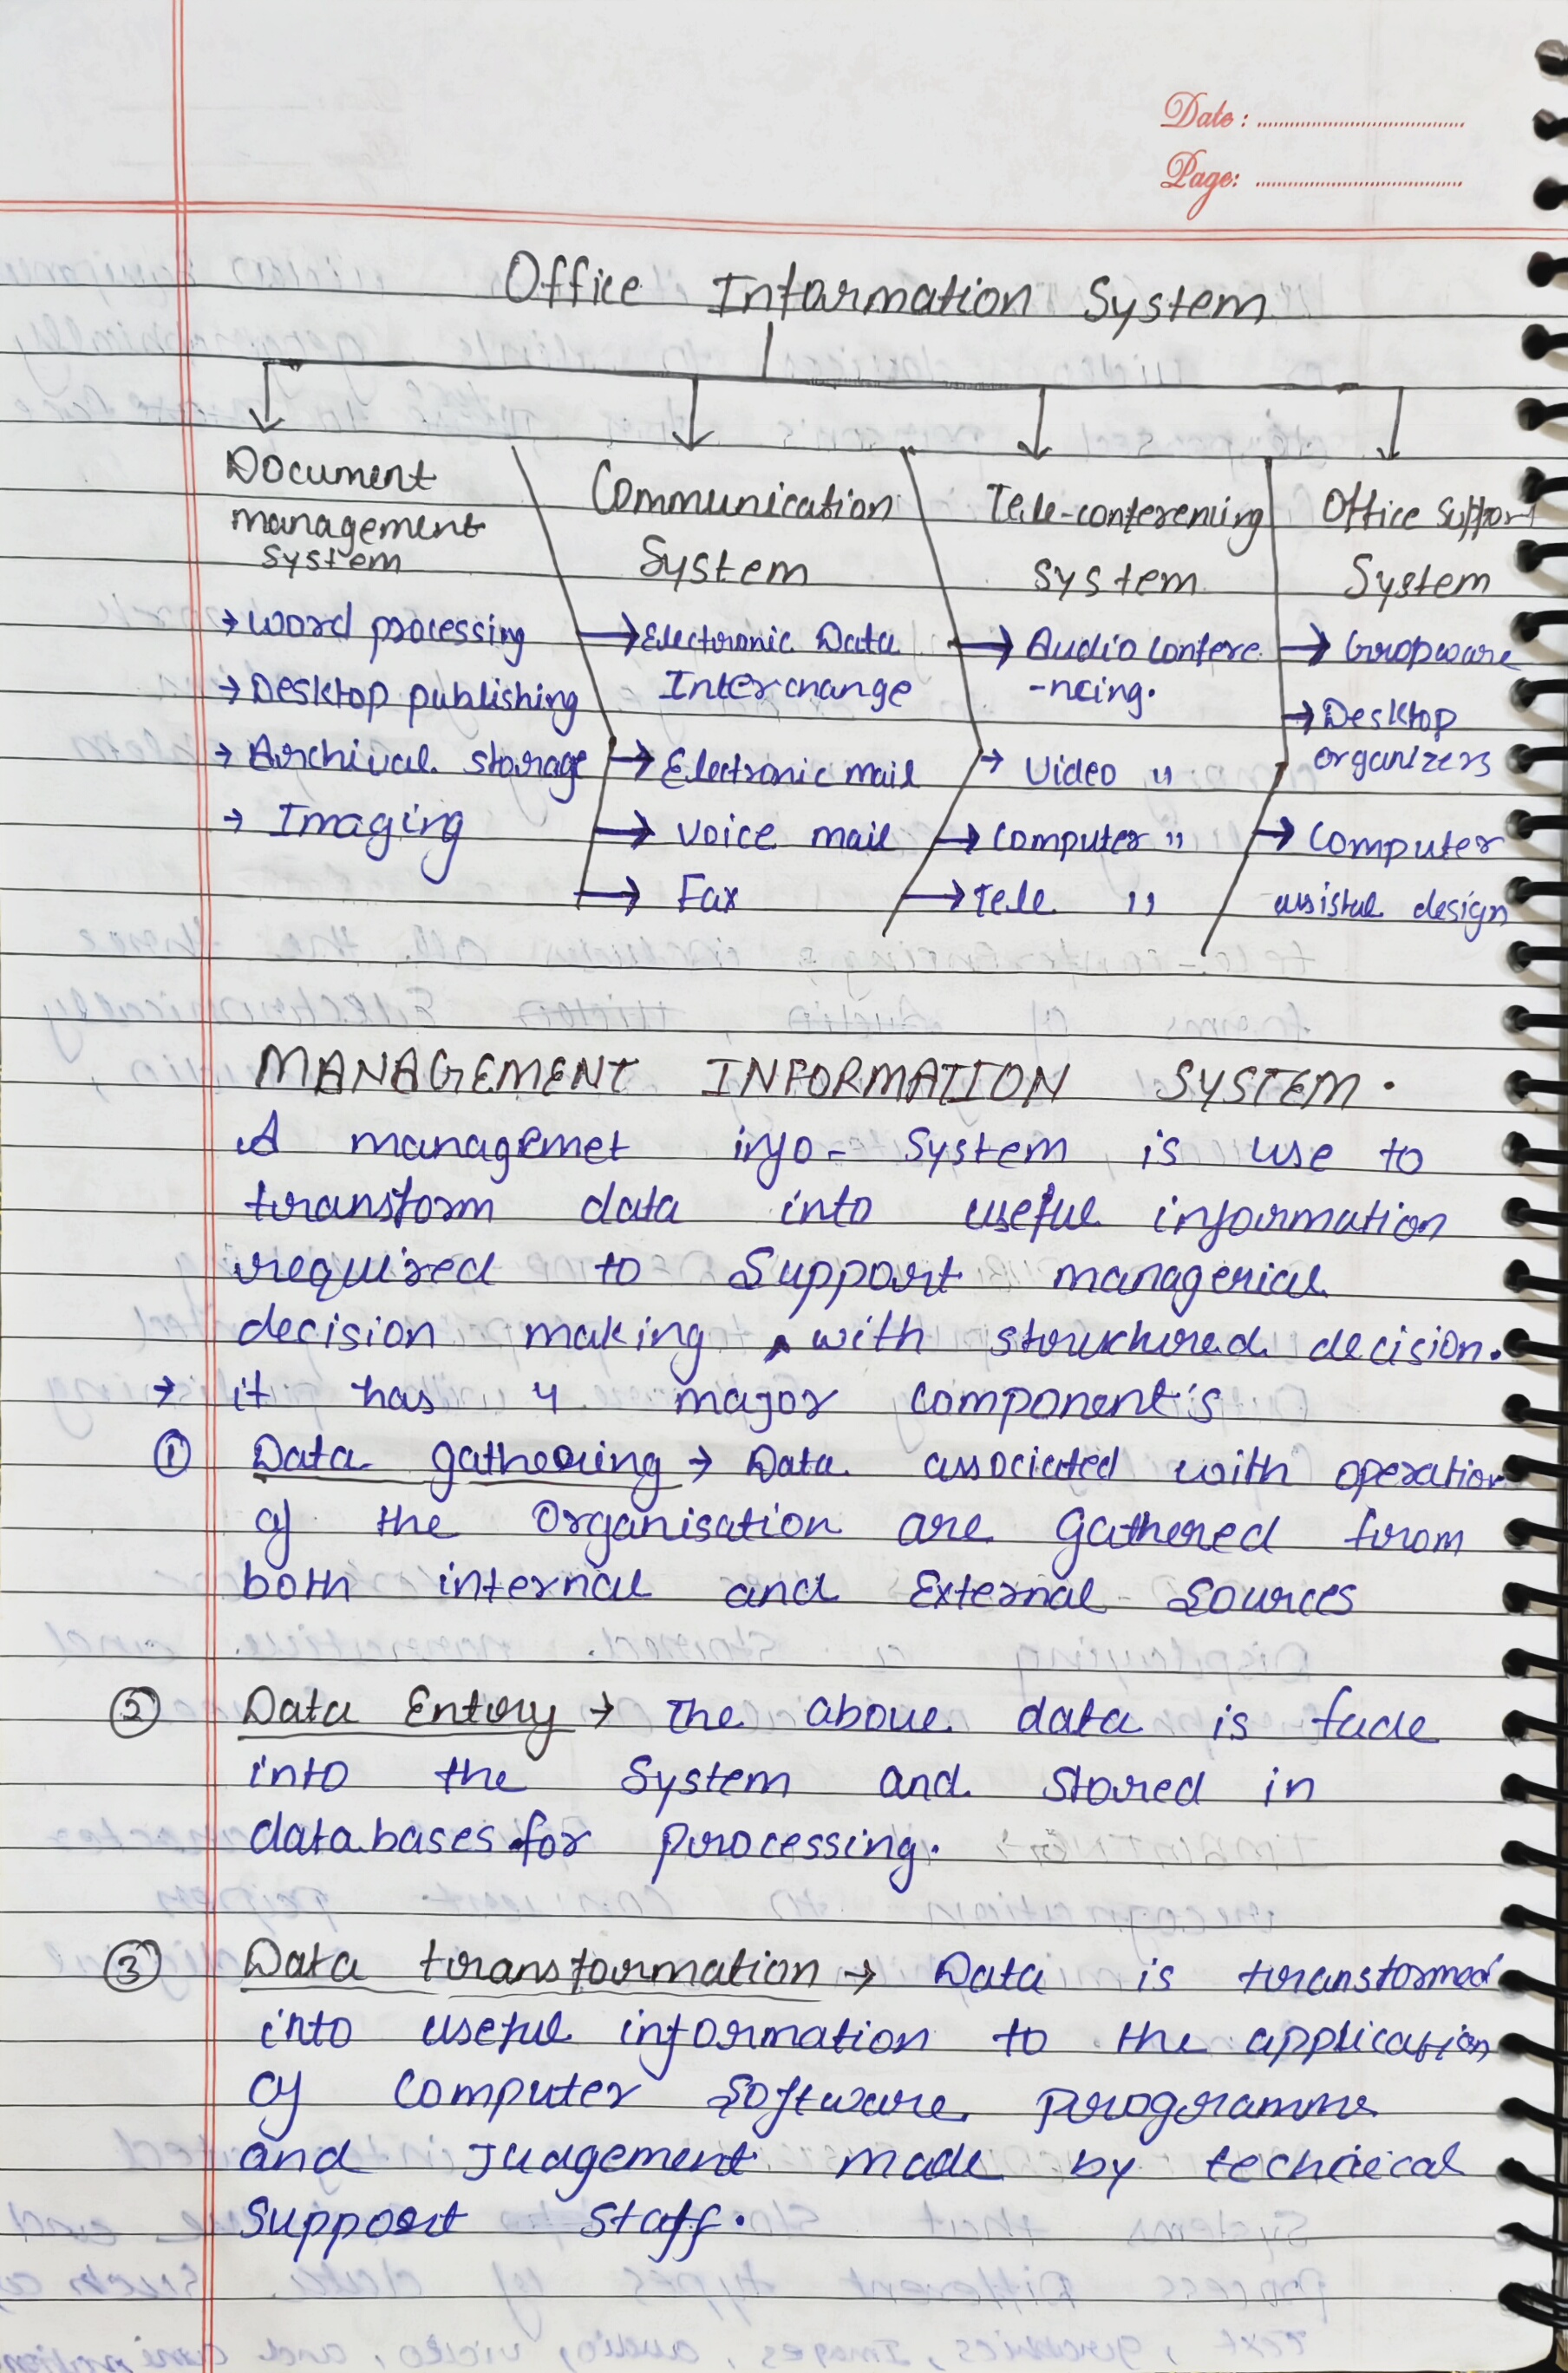 Date :
Page:
Office Information System
Document
management
System
→ Word processing
→ Desktop publishing
→ Archival storage
→ Imaging
Communication
System
→ Electronic Data
Interchange
→ Electronic mail
→ Voice mail
→ Fax
Tele-conferencing
System
→ Audio confere
-ncing.
→ Video "
→ Computer "
→ Tele "
Office Support
System
→ Gropware
→ Desktop
organizers
→ Computer
assisted design
MANAGEMENT INFORMATION SYSTEM.
A managemet info- System is use to
transform data into useful information
required to Support managerial
decision making, with structured decision.
→ it has 4 major component's
① Data gathering → Data associated with operation
of the Organisation are Gathered from
both internal and External Sources
② Data Entry → The above data is fade
into the System and Stored in
databases for processing.
③ Data transformation → Data is transformed
into useful information to the application
of Computer Software programme
and Judgement made by technical
Support Staff.